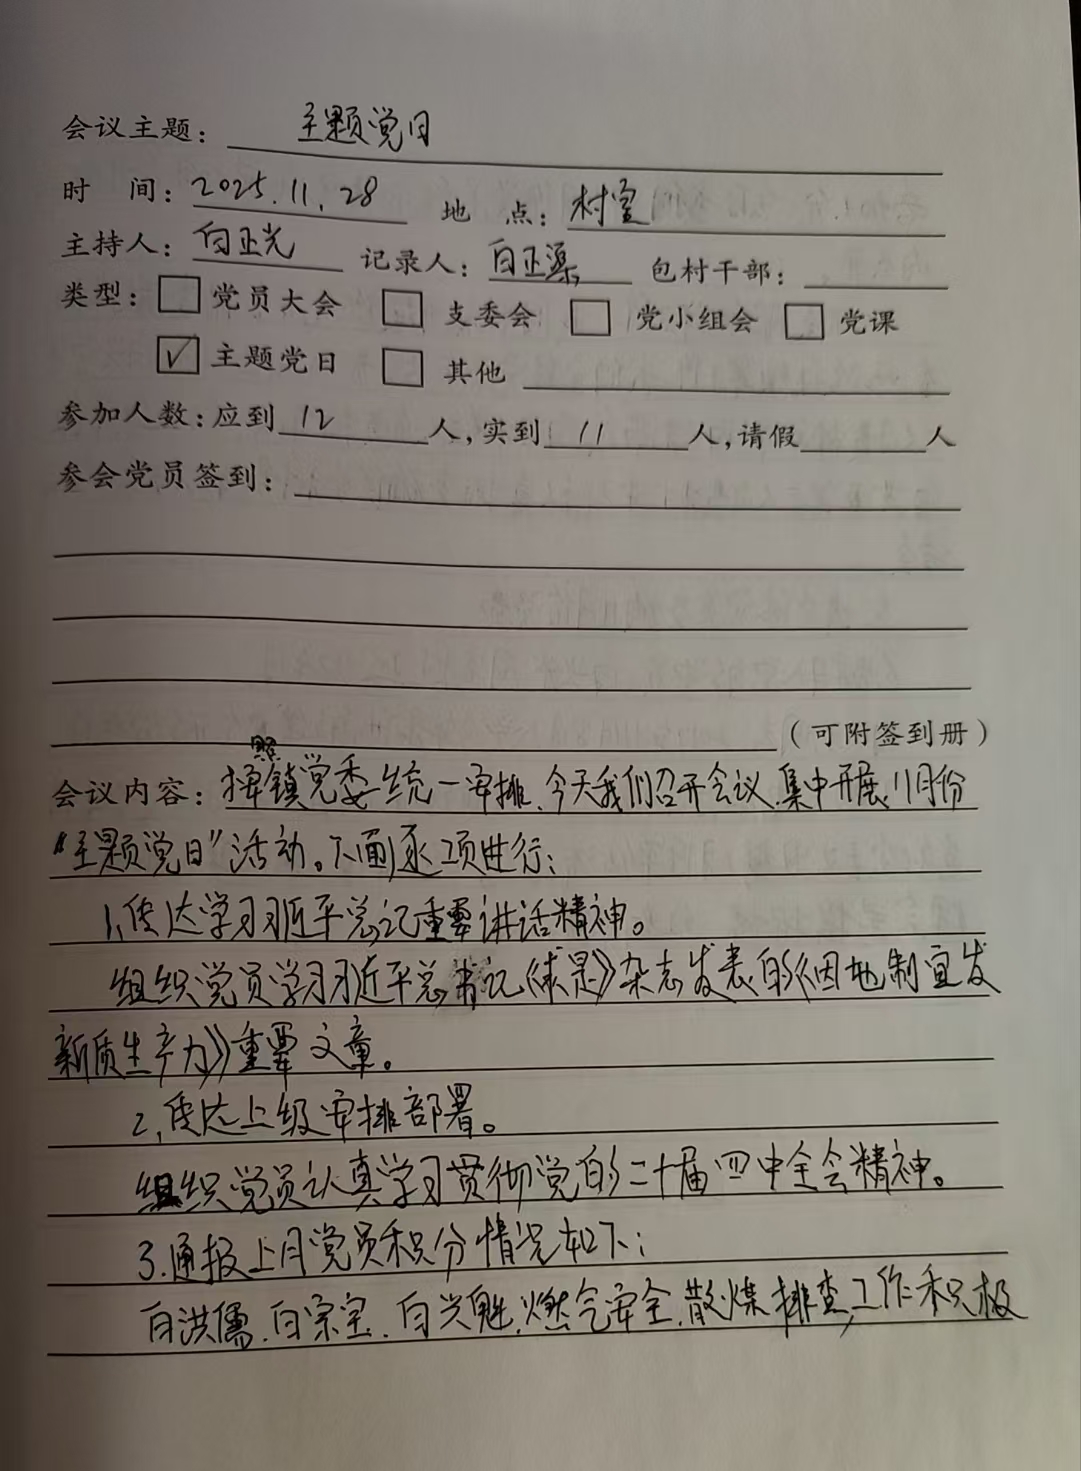 会议主题：主题党日
时 间：2025.11.28 地 点：村室
主持人：白正光 记录人：白正渠 包村干部：
类型：□党员大会 □支委会 □党小组会 □党课
☑主题党日 □其他
参加人数：应到12人，实到11人，请假 人
参会党员签到：
（可附签到册）
会议内容：按照镇党委统一安排、今天我们召开会议、集中开展11月份
“主题党日”活动。下面逐项进行：
1、传达学习习近平总记重要讲话精神。
组织党员学习习近平总书记《求是》杂志发表的《因地制宜发
新质生产力》重要文章。
2、传达上级安排部署。
组织党员认真学习贯彻党的二十届四中全会精神。
3.通报上月党员积分情况如下：
白洪儒、白宗宝、白兴魁、燃气安全、散煤排查，工作积极